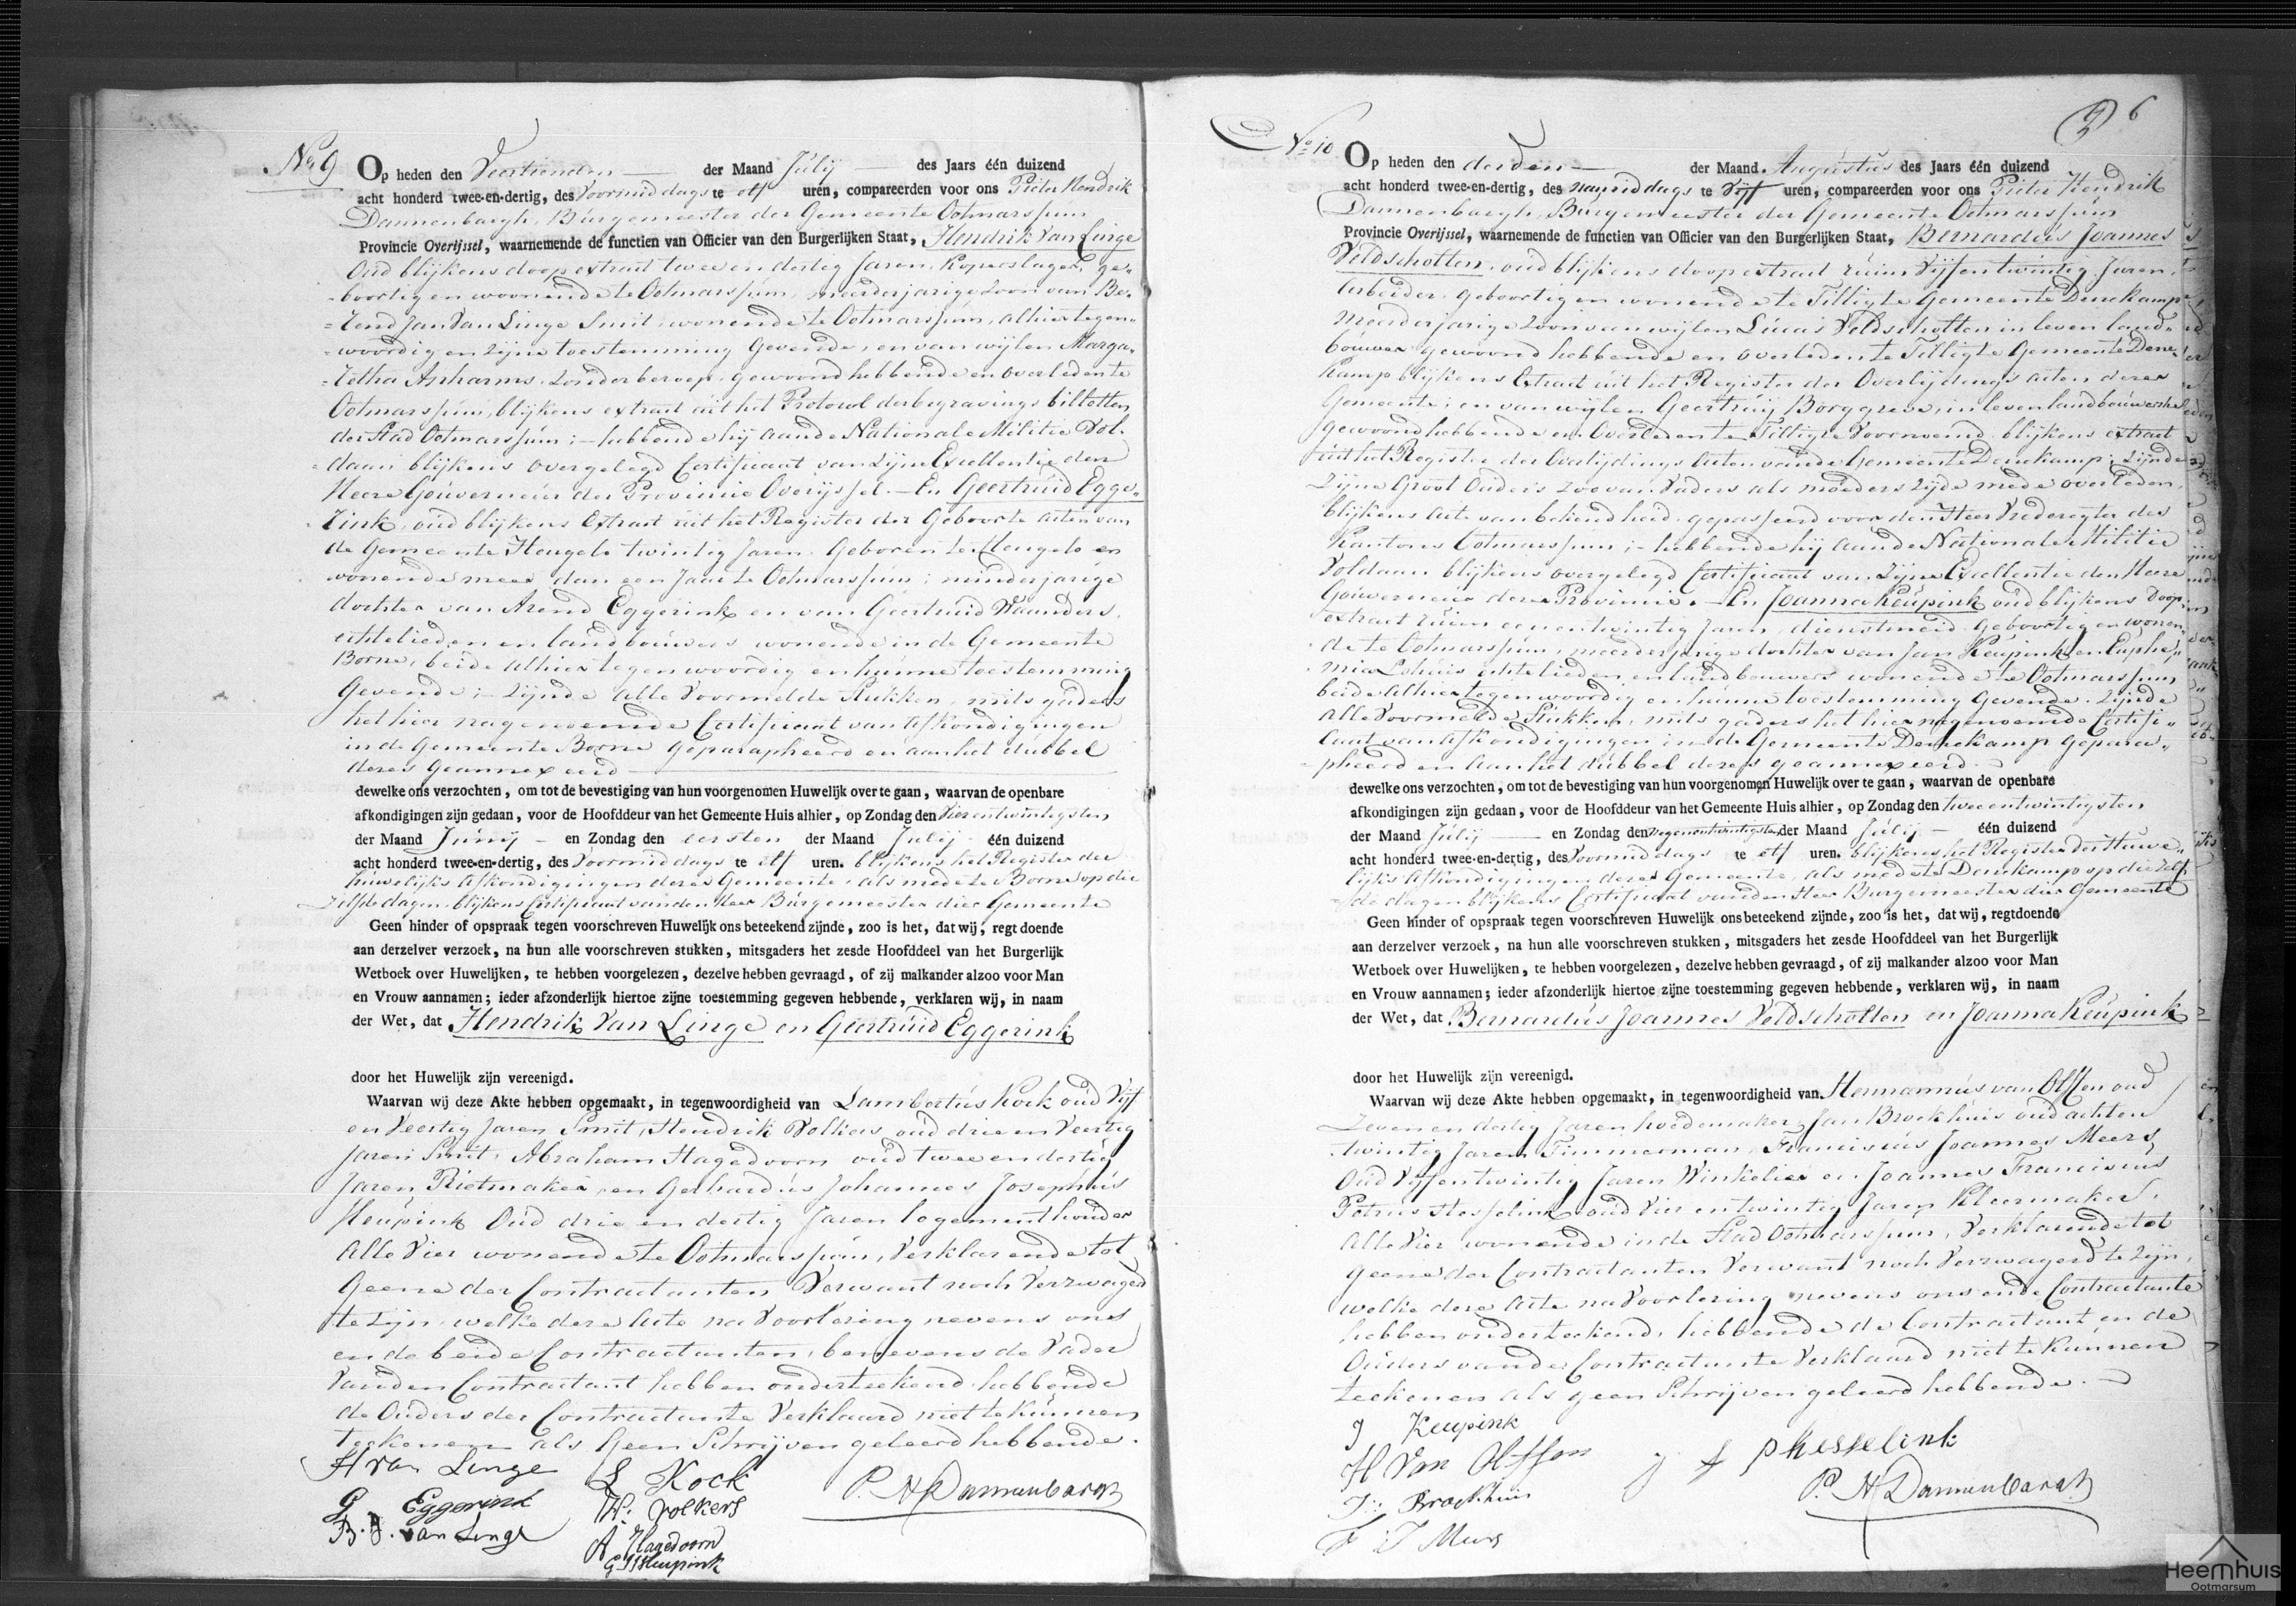 No 9
Op heden den Veertienden der Maand Julij des Jaars één duizend
acht honderd twee-en-dertig, des Voormiddags te elf uren, compareerden voor ons Pieter Hendrik
Dannenbargh, Burgemeester der Gemeente Ootmarssum
Provincie Overijssel, waarnemende de functien van Officier van den Burgerlijken Staat, Hendrik Van Linge
Oud blijkens doop extract twee en dertig Jaren, Koperslager, ge-
boortig en woonende te Ootmarssum, meerderjarige Zoon van Be-
rend Jan Van Linge Smit, wonende te Ootmarssum, alhier tegen-
woordig en zijne toestemming Gevende, en van wijlen Marga-
retha Anharms, Zonder beroep, gewoond hebbende en overleden te
Ootmarssum, blijkens extract uit het Protocol der begravings billetten
der Stad Ootmarssum; – hebbende hij aan de Nationale Militie Vol-
daan blijkens overgelegd Certificaat van Zijne Excellentie den
Heere Gouverneur der Provincie Overijssel. – En Geertruid Egge-
rink, oud blijkens Extract uit het Register der Geboorte acten van
de Gemeente Hengelo twintig Jaren, Geboren te Hengelo en
wonende meer dan een Jaar te Ootmarssum; minderjarige
dochter van Arend Eggerink en van Geertruid Waanders,
echtelieden en landbouwers wonende in de Gemeente
Borne, beide alhier tegenwoordig en hunne toestemming
Gevende; – Zijnde alle Voormelde Stukken, mits gaders
het hier nagenoemde Certificaat van Afkondigingen
in de Gemeente Borne geparapheerd en aan het dubbel
dezes geannexeerd
dewelke ons verzochten, om tot de bevestiging van hun voorgenomen Huwelijk over te gaan, waarvan de openbare
afkondigingen zijn gedaan, voor de Hoofddeur van het Gemeente Huis alhier, op Zondag den Vierentwintigsten
der Maand Junij en Zondag den eersten der Maand Julij één duizend
acht honderd twee-en-dertig, des Voormiddags te elf uren. blijkens het Register der
huwelijks Afkondigingen dezer Gemeente, als mede te Borne op die
Zelfde dagen, blijkens Certificaat van den Heer Burgemeester dier Gemeente
Geen hinder of opspraak tegen voorschreven Huwelijk ons beteekend zijnde, zoo is het, dat wij, regt doende
aan derzelver verzoek, na hun alle voorschreven stukken, mitsgaders het zesde Hoofddeel van het Burgerlijk
Wetboek over Huwelijken, te hebben voorgelezen, dezelve hebben gevraagd, of zij malkander alzoo voor Man
en Vrouw aannamen; ieder afzonderlijk hiertoe zijne toestemming gegeven hebbende, verklaren wij, in naam
der Wet, dat Hendrik Van Linge en Geertruid Eggerink
door het Huwelijk zijn vereenigd.
Waarvan wij deze Akte hebben opgemaakt, in tegenwoordigheid van Lambertus Kock oud Vijf
en Veertig Jaren Smit, Hendrik Volkers oud drie en Veertig
Jaren Smit, Abraham Hagedoorn oud twee en dertig
Jaren, Rietmaker, en Gerhardus Johannes Josephus
Heupink Oud drie en dertig Jaren logementhouder
Alle Vier wonende te Ootmarssum, Verklarende tot
Geene der Contractanten Verwant noch Verzwagerd
te zijn, welke deze Acte na Voorlezing nevens ons
en de beide Contractanten, benevens de Vader
Van den Contractant hebben onderteekend, hebbende
de Ouders der Contractante Verklaard niet te kunnen
teekenen als Geen Schrijven geleerd hebbende.
H van Linge
G Eggerink
B. J. van Linge
L Kock
H: Volkers
A Hagedoorn
G J J Heupink
P. H Dannenbargh
6
No 10
Op heden den derden der Maand Augustus des Jaars één duizend
acht honderd twee-en-dertig, des namiddags te Vijf uren, compareerden voor ons Pieter Hendrik
Dannenbargh, Burgemeester der Gemeente Ootmarssum
Provincie Overijssel, waarnemende de functien van Officier van den Burgerlijken Staat, Bernardus Joannes
Veldscholten, oud blijkens doop extract ruim Vijfentwintig Jaren,
Arbeider, geboortig en wonende te Tilligte Gemeente Denekamp
Meerderjarige Zoon van wijlen Lucas Veldscholten in leven land-
bouwer gewoond hebbende en overleden te Tilligte Gemeente Dene-
kamp blijkens Extract uit het Register der Overlijdings acten dezer
Gemeente; en van wijlen Geertruij Borggreve, in leven landbouwersche
gewoond hebbende en Overleden te Tilligte Voornoemd, blijkens extract
uit het Register der Overlijdings Acten van de Gemeente Denekamp; Zijnde
Zijne Groot Ouders zoo van Vaders als moeders Zijde mede overleden,
blijkens Acte van bekendheid, gepasseerd voor den Heer Vrederegter des
Kantons Ootmarssum; – hebbende hij aan de Nationale Militie
Voldaan blijkens overgelegd Certificaat van Zijne Excellentie den Heere
Gouverneur dezer Provincie. – En Joanna Keupink oud blijkens Doop
extract ruim eenentwintig Jaren, dienstmeid, geboortig en wonen-
de te Ootmarssum, meerderjarige dochter van Jan Keupink en Euphe-
mia Eshuis echtelieden en landbouwers wonende te Ootmarssum
beide alhier tegenwoordig en hunne toestemming Gevende. Zijnde
Alle Voormelde Stukken, mits gaders het hier nagenoemde Certifi-
caat van Afkondigingen in de Gemeente Denekamp gepara-
pheerd en aan het dubbel dezes geannexeerd.
dewelke ons verzochten, om tot de bevestiging van hun voorgenomen Huwelijk over te gaan, waarvan de openbare
afkondigingen zijn gedaan, voor de Hoofddeur van het Gemeente Huis alhier, op Zondag den tweeentwintigsten
der Maand Julij en Zondag den negenentwintigsten der Maand Julij één duizend
acht honderd twee-en-dertig, des Voormiddags te elf uren. blijkens het Register der Huwe-
lijks Afkondigingen dezer Gemeente, als mede te Denekamp op die Zelf-
de dagen blijkens Certificaat van den Heer Burgemeester dier Gemeente
Geen hinder of opspraak tegen voorschreven Huwelijk ons beteekend zijnde, zoo is het, dat wij, regtdoende
aan derzelver verzoek, na hun alle voorschreven stukken, mitsgaders het zesde Hoofddeel van het Burgerlijk
Wetboek over Huwelijken, te hebben voorgelezen, dezelve hebben gevraagd, of zij malkander alzoo voor Man
en Vrouw aannamen; ieder afzonderlijk hiertoe zijne toestemming gegeven hebbende, verklaren wij, in naam
der Wet, dat Bernardus Joannes Veldscholten en Joanna Keupink
door het Huwelijk zijn vereenigd.
Waarvan wij deze Akte hebben opgemaakt, in tegenwoordigheid van Hermannus van Olffen oud
Zevenendertig Jaren hoedemaker, Jan Broekhuis oud achten
twintig Jaren Timmerman, Franciscus Joannes Meers
Oud Vijfentwintig Jaren Winkelier en Joannes Franciscus
Petrus Hesselink oud Vierentwintig Jaren Kleermaker,
Alle Vier wonende in de Stad Ootmarssum, Verklarende tot
geene der Contractanten Verwant noch Verzwagerd te Zijn,
welke deze Acte na Voorlezing nevens ons en de Contractante
hebben onderteekend, hebbende de Contractant en de
Ouders van de Contractante Verklaard niet te kunnen
teekenen als geen Schrijven geleerd hebbende.
J Keupink
H Van Olffen
J: Broekhuis
F: J Meers
J F P Hesselink
P. H Dannenbargh
Heemhuis
Ootmarsum